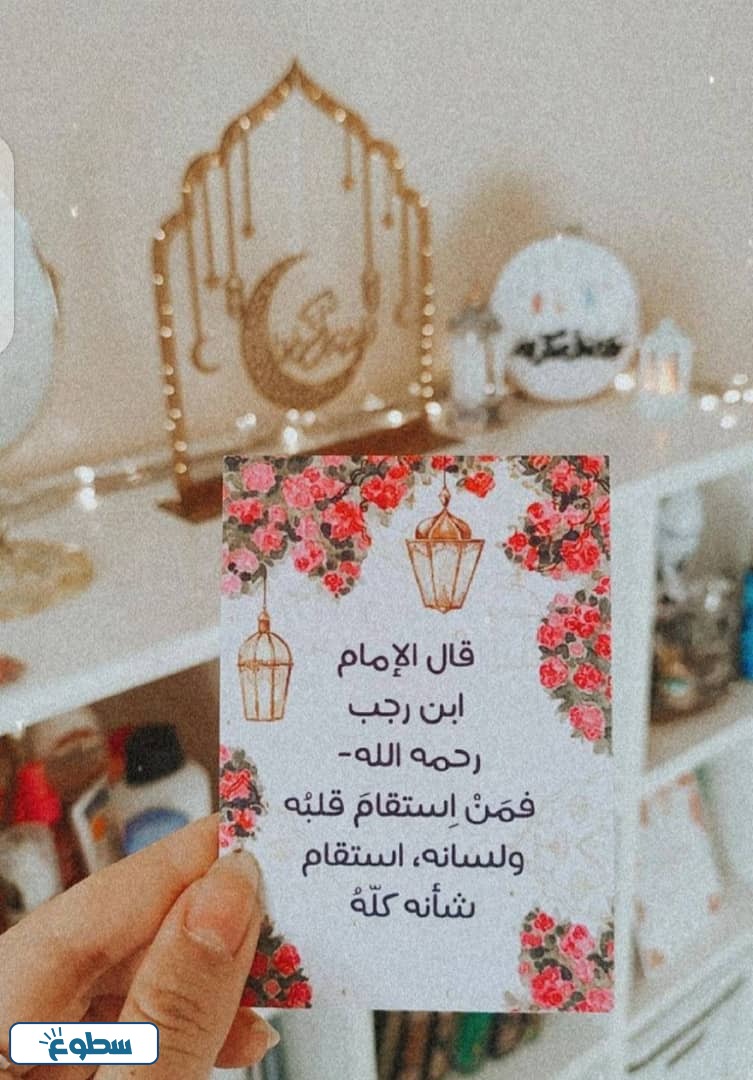 قال الإمام
ابن رجب
رحمه الله-
فمَنْ اِستقامَ قلبُه
ولسانه، استقام
شأنه كلّهُ
سطوع